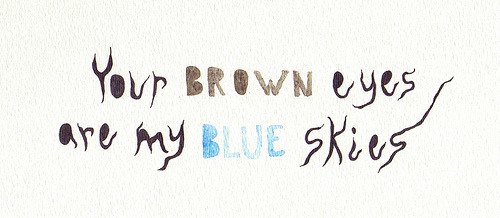 Your BROWN eyes
are my BLUE skies